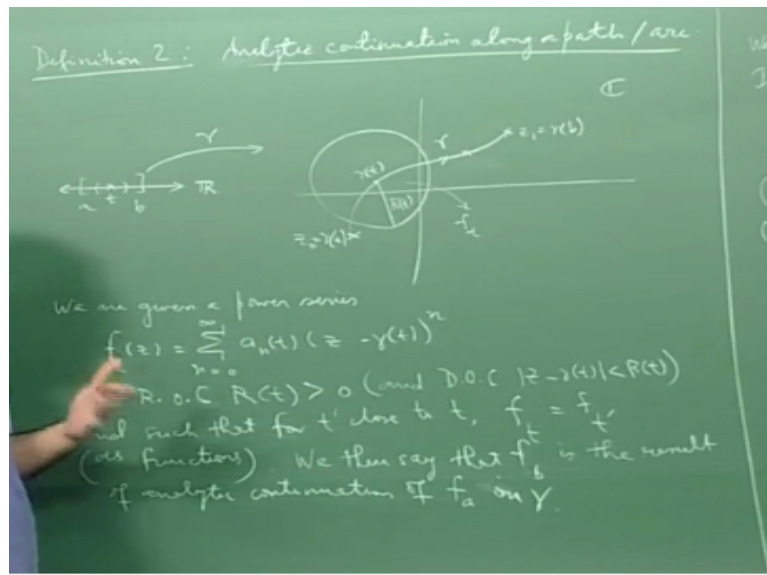 Definition 2 : Analytic continuation along a path / arc.
ℂ
γ
z₁ = γ(b)
γ
γ(t)
[ ( x ) ] ℝ
a t b
R(t)
z₀ = γ(a)
f_t
We are given a power series
f(z) = ∑_{n=0}^{∞} a_n(t) (z - γ(t))^n
R.O.C R(t) > 0 (and D.O.C |z - γ(t)| < R(t))
and such that for t' close to t, f_t = f_t'
(as functions). We then say that f_b is the result
of analytic continuation of f_a on γ.
We
I